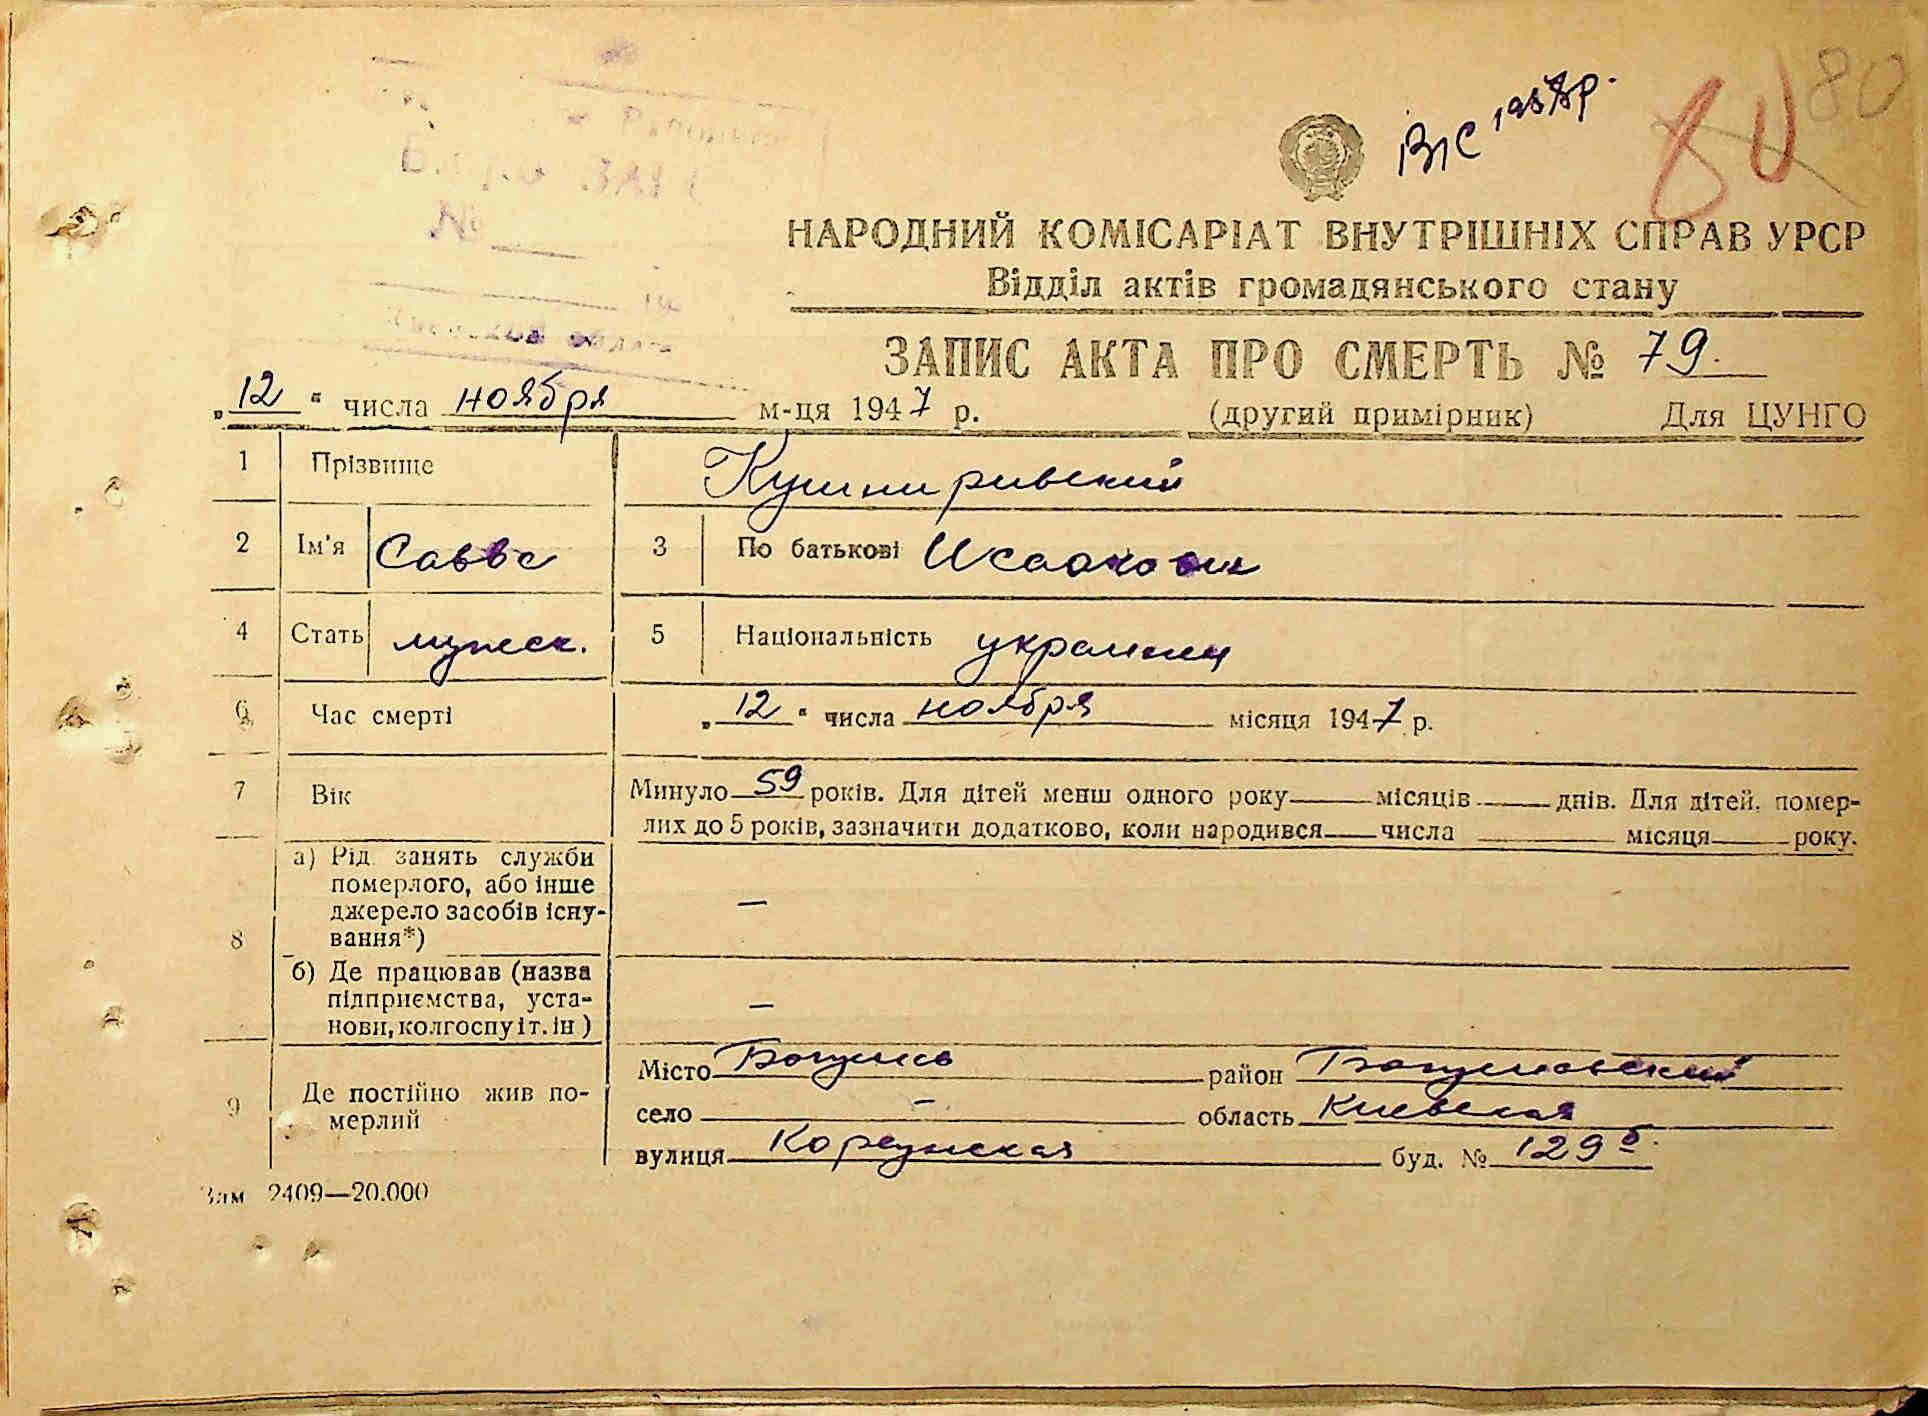 80
ВІС
НАРОДНИЙ КОМІСАРІАТ ВНУТРІШНІХ СПРАВ УРСР
Відділ актів громадянського стану
ЗАПИС АКТА ПРО СМЕРТЬ № 79.
№
„12" числа ноября м-ця 1947 р. (другий примірник) Для ЦУНГО
1 Прізвище Кушниривский
2 Ім'я Савва 3 По батькові Исаакович
4 Стать мужск. 5 Національність украинец
6 Час смерті „12" числа ноября місяця 1947 р.
7 Вік Минуло 59 років. Для дітей менш одного року місяців днів. Для дітей, помер-
лих до 5 років, зазначити додатково, коли народився числа місяця року.
8 а) Рід занять служби
померлого, або інше
джерело засобів існу-
вання*) —
б) Де працював (назва
підприємства, уста-
нови, колгоспу і т. ін) —
9 Де постійно жив по-
мерлий
Місто Богуслав район Богуславский
село – область Киевская
вулиця Корсунская буд. № 129б.
Зам 2409—20.000